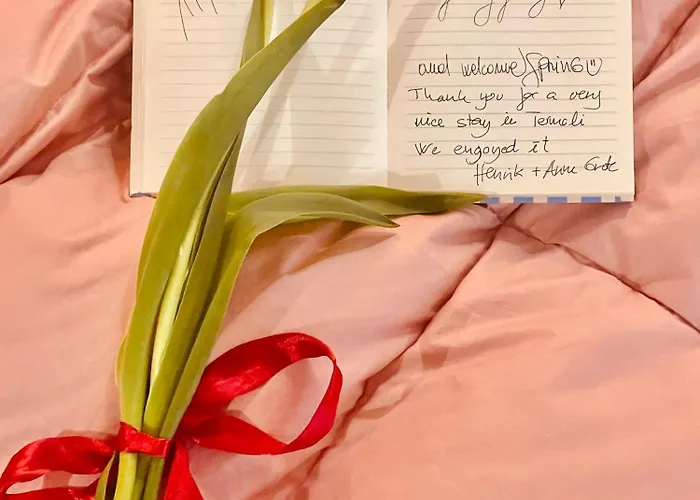 and welcome Spring
Thank you for a very
nice stay in Termoli
We engoyed it
Henrik + Anne Grete